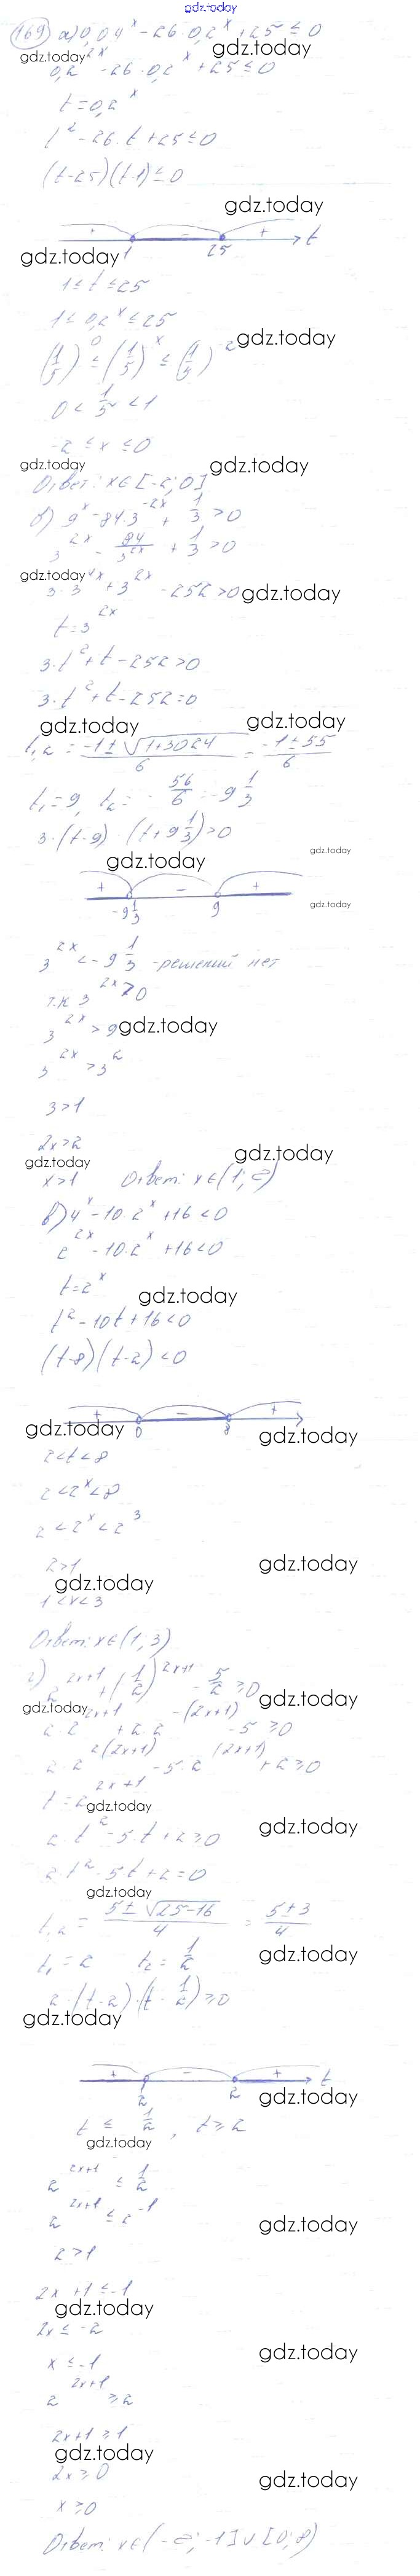 gdz.today
169) а) 0,04^x - 26·0,2^x + 25 ≤ 0
gdz.today
gdz.today
0,2^2x - 26·0,2^x + 25 ≤ 0
t = 0,2^x
t^2 - 26·t + 25 ≤ 0
(t-25)(t-1) ≤ 0
gdz.today
+ - + t
gdz.today
1 25
1 ≤ t ≤ 25
1 ≤ 0,2^x ≤ 25
gdz.today
(1/5)^0 ≤ (1/5)^x ≤ (1/5)^-2
0 < 1/5 < 1
-2 ≤ x ≤ 0
gdz.today
gdz.today
Ответ: x∈[-2; 0]
б) 9^x - 84·3^-2x + 1/3 > 0
3^2x - 84/3^2x + 1/3 > 0
gdz.today
gdz.today
3·3^4x + 3^2x - 252 > 0
t = 3^2x
3·t^2 + t - 252 > 0
3·t^2 + t - 252 = 0
gdz.today
gdz.today
t1,2 = (-1 ± √(1+3024))/6 = (-1 ± 55)/6
t1 = 9, t2 = -56/6 = -9 1/3
3·(t-9)·(t+9 1/3) > 0
gdz.today
gdz.today
+ - +
gdz.today
-9 1/3 9
3^2x < -9 1/3 - решений нет
т.к 3^2x > 0
3^2x > 9
gdz.today
3^2x > 3^2
3 > 1
2x > 2
gdz.today
gdz.today
x > 1 Ответ: x∈(1; ∞)
в) 4^x - 10·2^x + 16 < 0
2^2x - 10·2^x + 16 < 0
t = 2^x
gdz.today
t^2 - 10t + 16 < 0
(t-8)(t-2) < 0
+ - +
gdz.today
0 8
gdz.today
2 < t < 8
2 < 2^x < 8
2 < 2^x < 2^3
2 > 1
gdz.today
gdz.today
1 < x < 3
Ответ: x∈(1; 3)
г) 2^2x+1 + (1/2)^2x+1 - 5/2 ≥ 0
gdz.today
gdz.today
2·2^2x+1 + 2·2^-(2x+1) - 5 ≥ 0
2·2^2(2x+1) - 5·2^(2x+1) + 2 ≥ 0
t = 2^2x+1
gdz.today
gdz.today
2·t^2 - 5·t + 2 ≥ 0
2·t^2 - 5t + 2 = 0
gdz.today
t1,2 = (5 ± √(25-16))/4 = (5 ± 3)/4
gdz.today
t1 = 2 t2 = 1/2
2·(t-2)·(t - 1/2) ≥ 0
gdz.today
+ - + t
1/2 2
gdz.today
t ≤ 1/2, t ≥ 2
gdz.today
2^2x+1 ≤ 1/2
2^2x+1 ≤ 2^-1
gdz.today
2 > 1
2x+1 ≤ -1
gdz.today
2x ≤ -2
gdz.today
x ≤ -1
2^2x+1 ≥ 2
2x+1 ≥ 1
gdz.today
2x ≥ 0
gdz.today
x ≥ 0
Ответ: x∈(-∞; -1]∪[0; ∞)